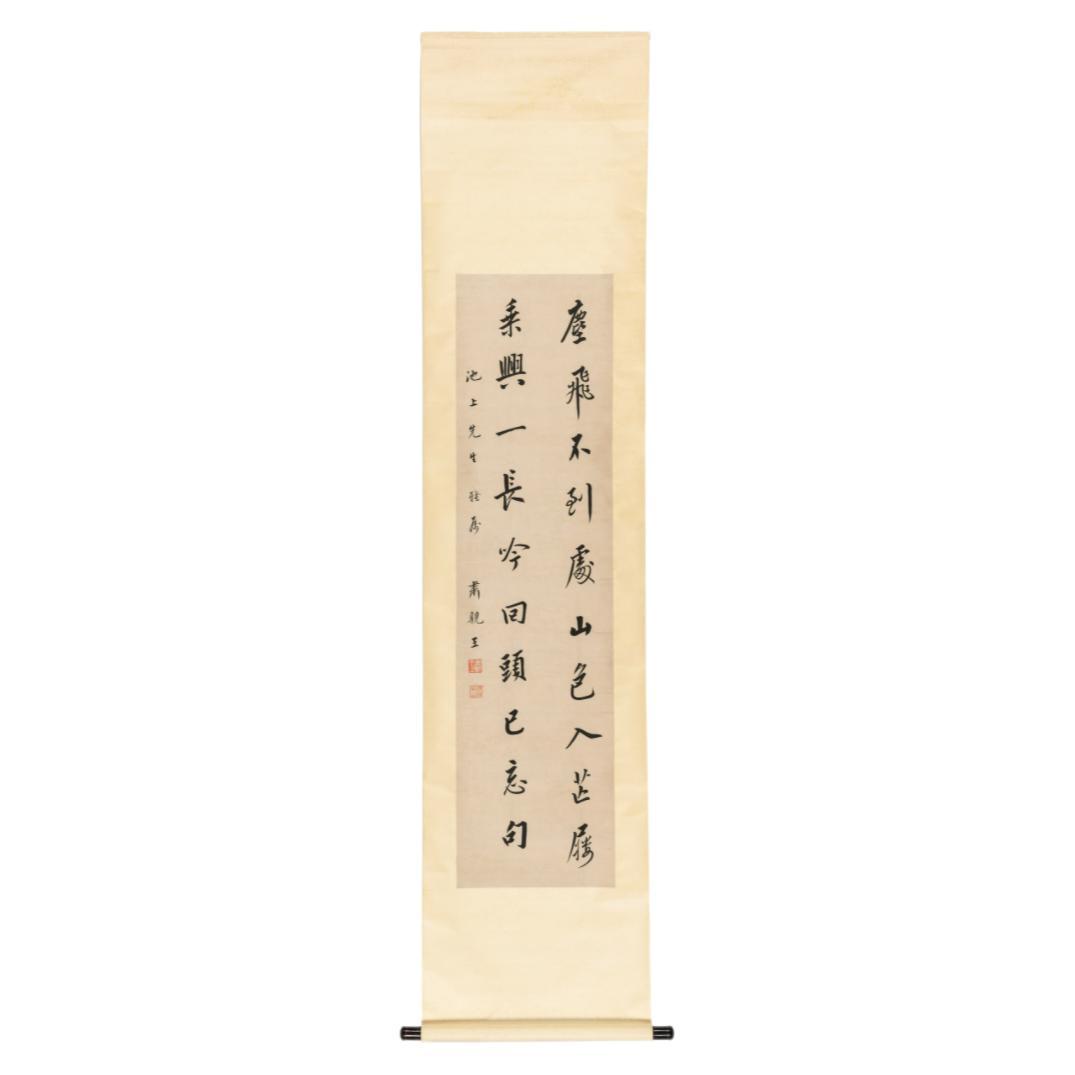 塵飛不到處山色入芒屨
乘興一長吟回頭已忘句
池上先生雅屬 肅親王